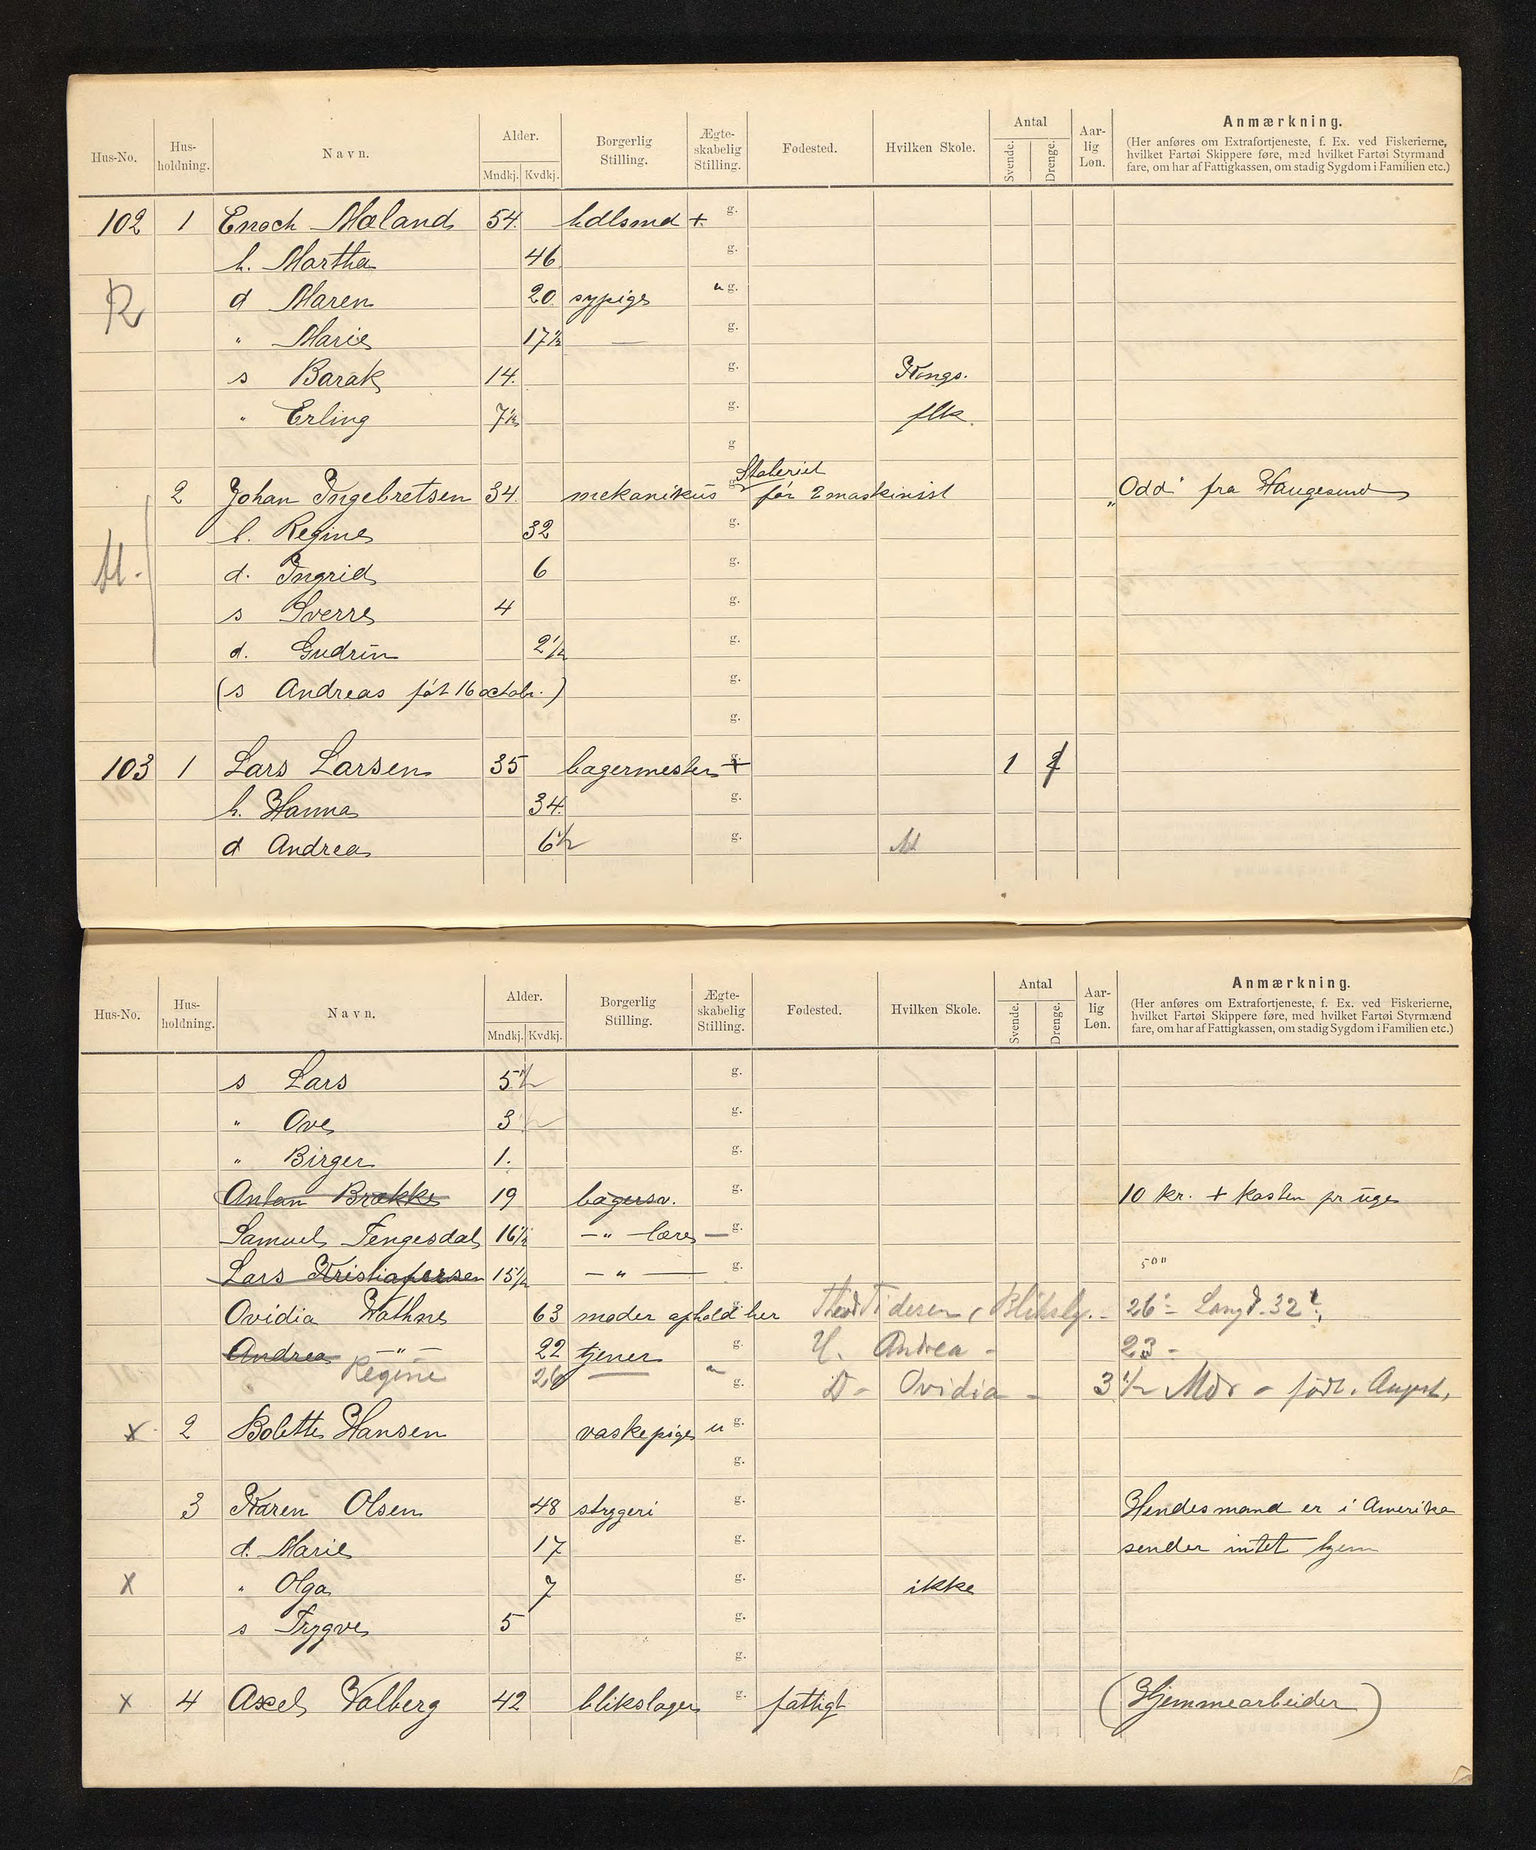 Hus-No. Hus-holdning. Navn. Alder. Mndkj. Kvdkj. Borgerlig Stilling. Ægte-skabelig Stilling. Fødested. Hvilken Skole. Antal Svende. Drenge. Aar-lig Løn. Anmærkning.
(Her anføres om Extrafortjeneste, f. Ex. ved Fiskerierne, hvilket Fartøi Skippere føre, med hvilket Fartøi Styrmænd fare, om har af Fattigkassen, om stadig Sygdom i Familien etc.)
102 1 Enoch Mæland 54. hdlsmd + g.
h. Martha 46 g.
R d Maren 20 sypige " g.
" Marie 17½ — g.
s Barak 14. g. Kongs.
" Erling 7½ g. flk.
g
2 Johan Ingebretsen 34 mekanikus g. før 2 maskinist "Odd" fra Haugesund
h. Regine 32 g.
M. d. Ingrid 6 g.
s Sverre 4 g.
d. Gudrun 2½ g.
(s Andreas føt 16 octobr.) g.
g.
103 1 Lars Larsen 35 bagermester + g. 1
h. Hanna 34. g.
d Andrea 6½ g. M
Hus-No. Hus-holdning. Navn. Alder. Mndkj. Kvdkj. Borgerlig Stilling. Ægte-skabelig Stilling. Fødested. Hvilken Skole. Antal Svende. Drenge. Aar-lig Løn. Anmærkning.
(Her anføres om Extrafortjeneste, f. Ex. ved Fiskerierne, hvilket Fartøi Skippere føre, med hvilket Fartøi Styrmænd fare, om har af Fattigkassen, om stadig Sygdom i Familien etc.)
s Lars 5½ g.
" Ove 3½ g.
" Birger 1. g.
Anton Brække 19 bagersv. g. 10 kr. + kosten pr uge
Samuel Tengesdal 16½ —"— lære — g.
Lars Kristiafersen 15½ —"— g. 50"
Ovidia Wathne 63 moder ophold her Tidesen, Blikslg. - 26 - Langg. 32
Andrea —"— 22 tjener g. H. Andrea - 23 -
Regine 26 " g. D - Ovidia - 3½ Mdr - født. August.
x 2 Bolette Hansen vaskepige u g.
g.
3 Karen Olsen 48 strygeri g. Hendes mand er i Amerika
d. Marie 17 g. sender intet hjem
x " Olga 7 g. ikke
s Trygve 5 g.
g.
x 4 Axel Valberg 42 blikslager g. fattigt (Hjemmearbeider)